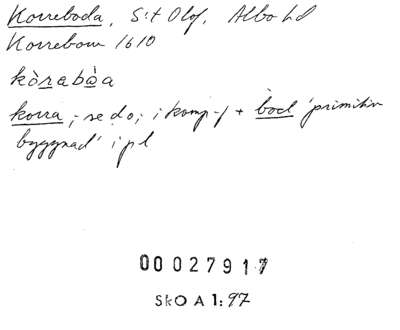 Korreboda, S:t Olof, Albo hd
Korrebow 1610
kòrabòa
korra, - se do; i komp-f + bod 'primitiv
byggnad' i pl
00027917
SkO A 1:97